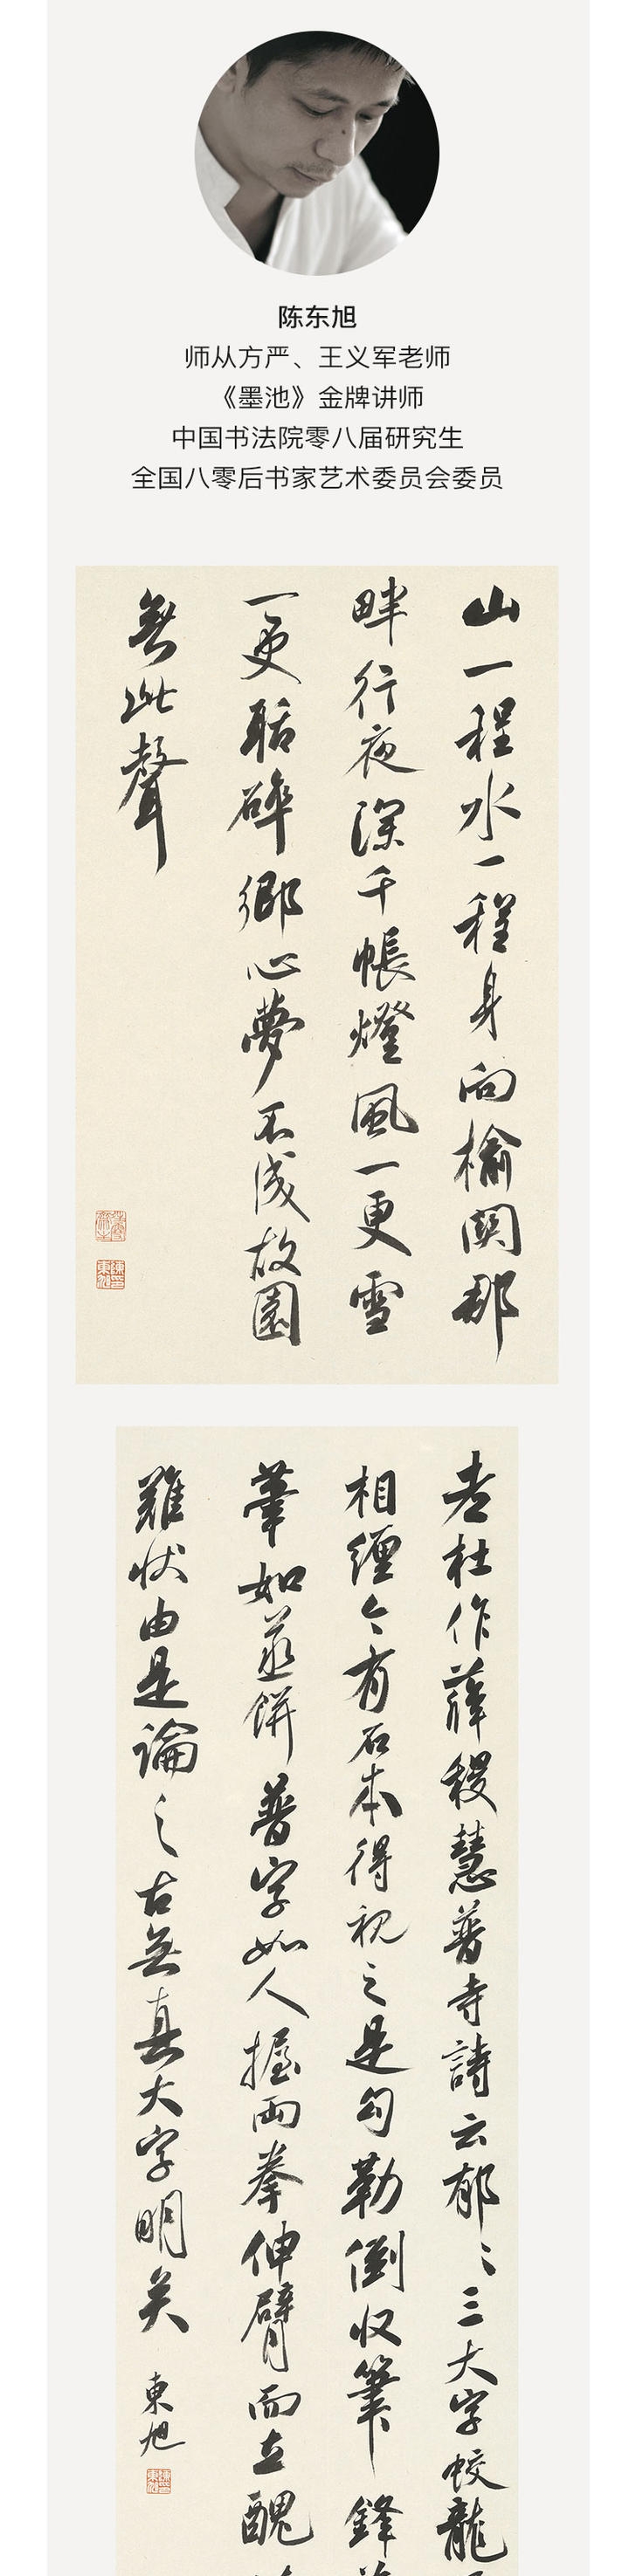 陈东旭
师从方严、王义军老师
《墨池》金牌讲师
中国书法院零八届研究生
全国八零后书家艺术委员会委员
山一程水一程身向榆關那
畔行夜深千帳燈風一更雪
一更聒碎鄉心夢不成故園
無此聲
老杜作薛稷慧普寺詩云郁〻三大字蛟龍
相纏今有石本得視之是勾勒倒收筆鋒
筆如蒸餅普字如人握兩拳伸臂而立醜
難状由是論之古無真大字明矣
東旭